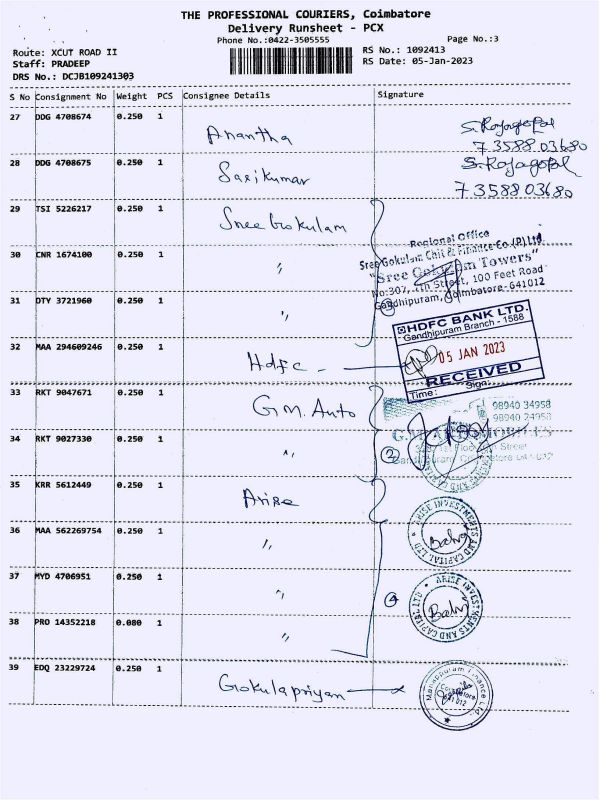 THE PROFESSIONAL COURIERS, Coimbatore
Delivery Runsheet - PCX
Phone No.:0422-3505555 Page No.:3
Route: XCUT ROAD II RS No.: 1092413
Staff: PRADEEP RS Date: 05-Jan-2023
DRS No.: DCJB109241303
S No Consignment No Weight PCS Consignee Details Signature
27 DDG 4708674 0.250 1 Anantha S. Rajagopal
73588 03680
28 DDG 4708675 0.250 1 Sasikumar S. Rajagopal
73588 03680
29 TSI 5226217 0.250 1 Sree Gokulam
Regional Office
Sree Gokulam Chit & Finance Co.(P) Ltd.
"Sree Gokulam Towers"
No:307, 7th Street, 100 Feet Road
Gandhipuram, Coimbatore-641012
30 CNR 1674100 0.250 1 "
31 OTY 3721960 0.250 1 " 3
32 MAA 294609246 0.250 1 Hdfc -
HDFC BANK LTD.
Gandhipuram Branch - 1588
05 JAN 2023
RECEIVED
Time: Sign:
33 RKT 9047671 0.250 1 G.M. Auto
98940 34958
98940 24958
34 RKT 9027330 0.250 1 " 2
35 KRR 5612449 0.250 1 Arise
36 MAA 562269754 0.250 1 "
ARISE INVESTMENTS AND CAPITAL LTD
37 MYD 4706951 0.250 1 " 4
ARISE INVESTMENTS AND CAPITAL LTD
38 PRO 14352218 0.080 1 "
39 EDQ 23229724 0.250 1 Gokulapriyan
Manappuram Finance Ltd.